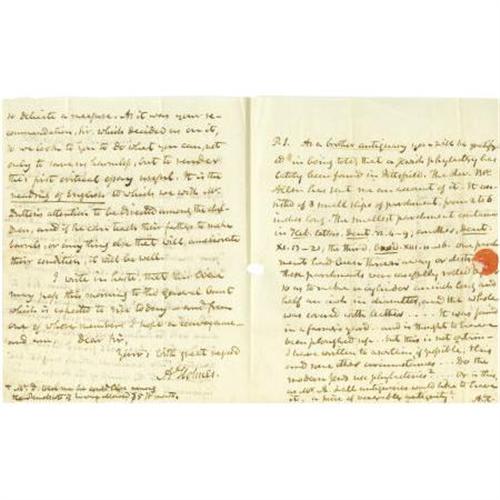 so delicate a measure. As it was your re-
commendation, Sir, which decided us on it,
so we look to you to do what you can, not
only to save us harmless, but to render
this first critical essay useful. It is the
reading of English to which we wish Mr.
attention to be directed among the chil-
dren, and if he can teach their fathers to make
or any thing else that will ameliorate
their condition, it will be well.
I write in haste, that this
may pass this morning to the General Court
which is expected to rise to day — and from
one of whose members I hope a conveyance —
and am, Dear Sir,
Yours, with great regard
A. Holmes.
P.S. As a brother antiquary you will be gratifi-
ed in being told, that a Jewish phylactery has
lately been found in Pittsfield. The Rev. Mr.
Allen has sent me an account of it. It con-
sisted of 3 small slips of parchment, from 2 to 6
inches long. The smallest parchment contains
in Heb. letters, Deut. VI. 4-9; another, Deut.
XI. 13-21, the third, Exod. XIII. 11-16. One parch-
ment had been thrown away or
These parchments were carefully rolled
so as to make a cylinder an inch long and
half an inch in diameter, and the whole
was covered with leather . . . . It was found
in a farmer's yard, and is thought to have
been ploughed up. but this is not certain —
I have written to ascertain, if possible, this
and some other circumstances — Do the
modern Jews use phylacteries? . . . or is this,
as Mr. A. & all antiquaries would like to have
it, a piece of venerable antiquity? A.H.